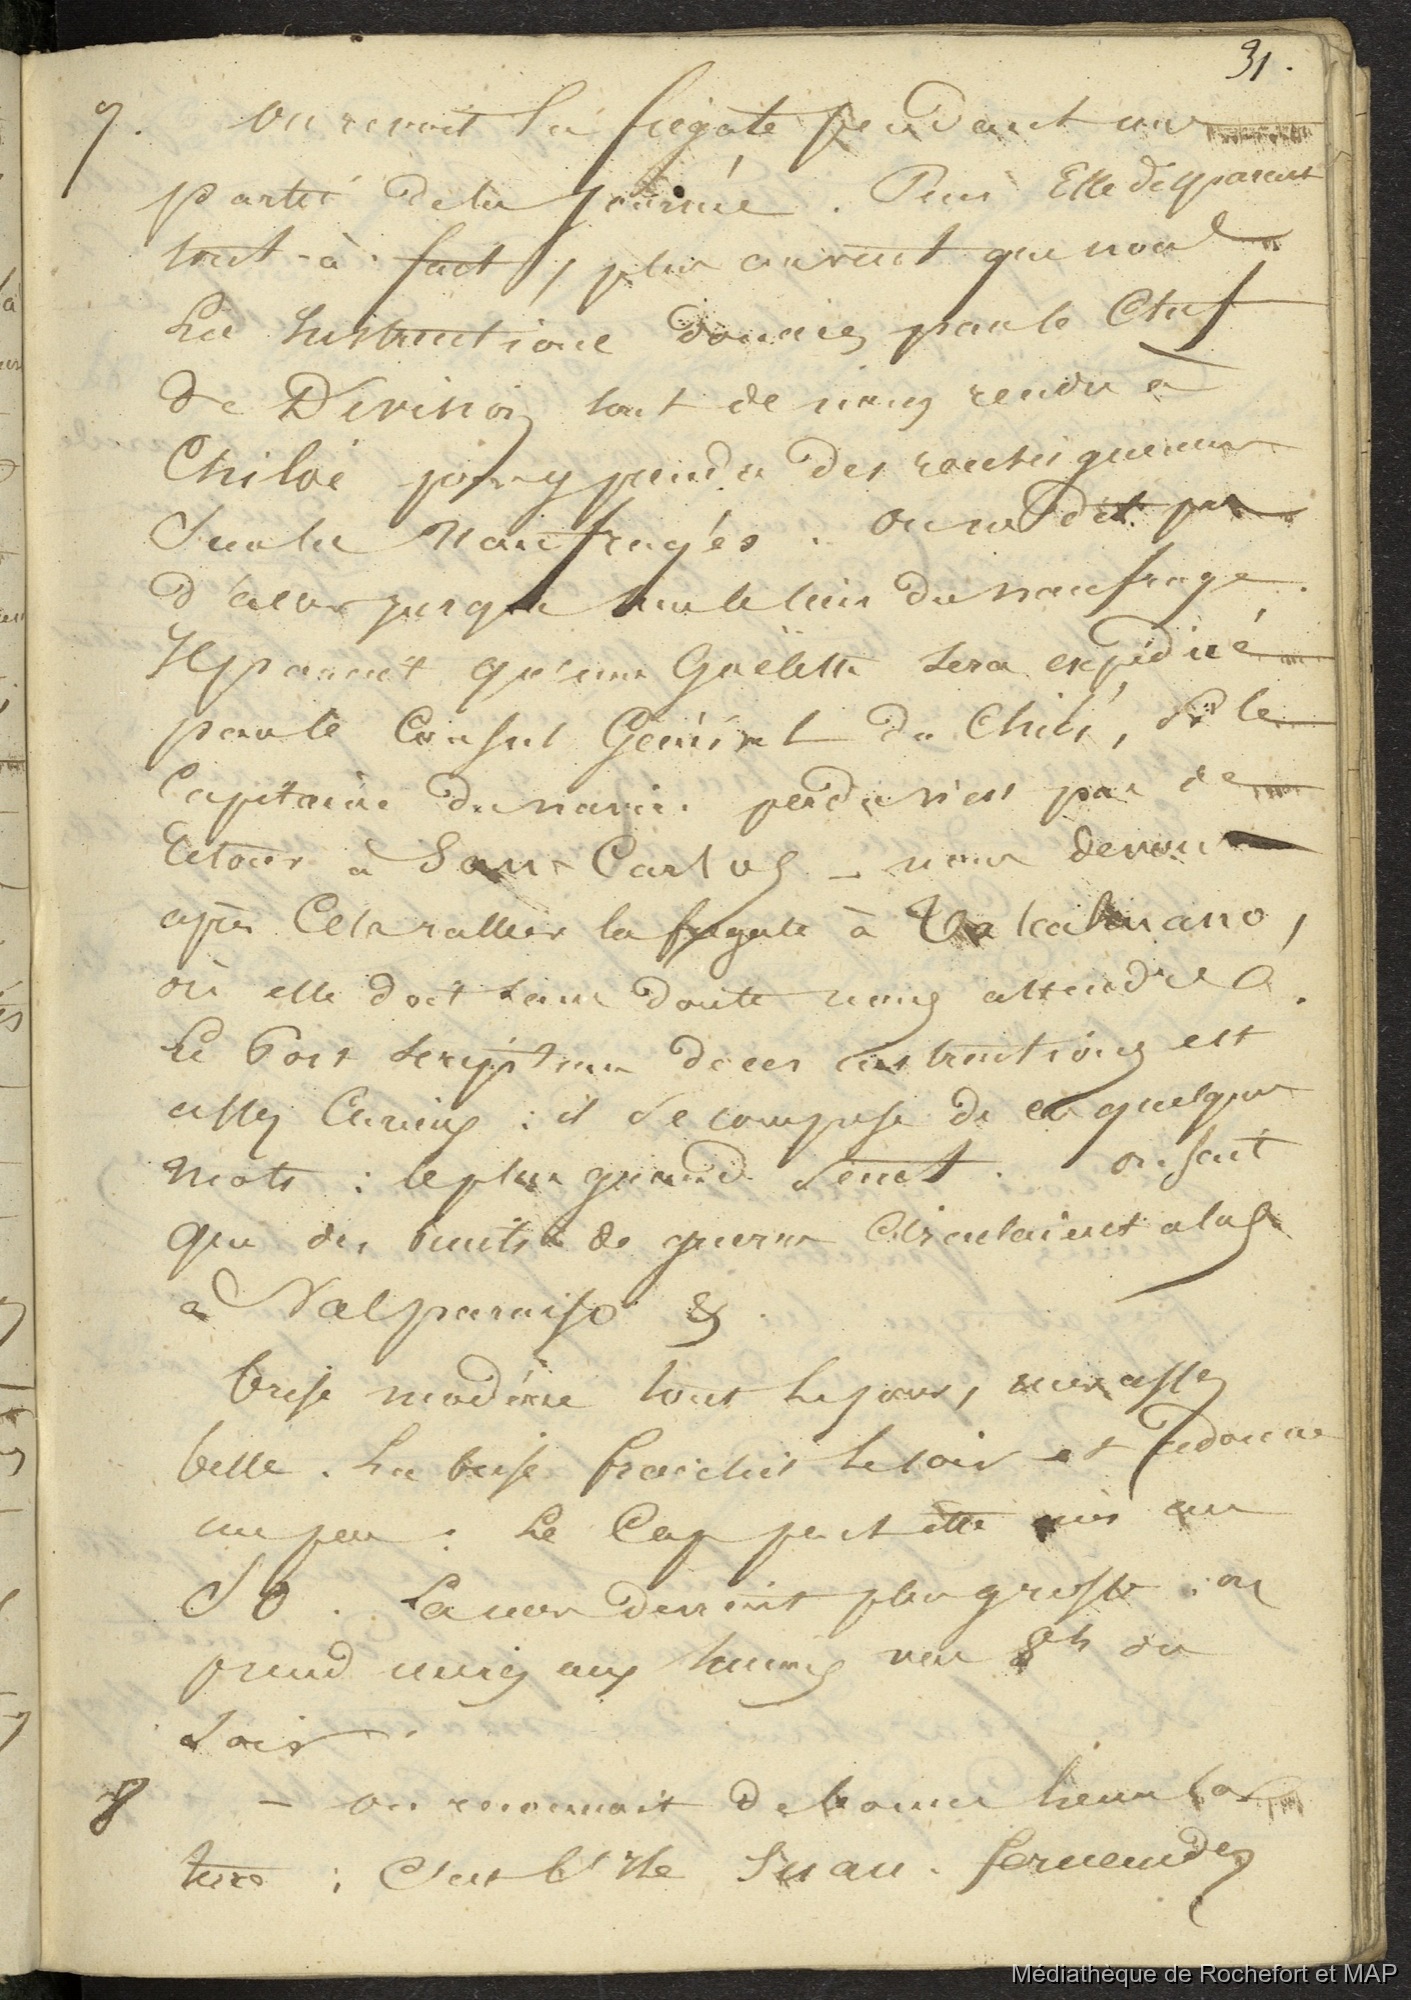 31.
7. On revoit la frégate pendant une
partie de la journée. Puis Elle disparait
tout-à-fait, plus au vent que nous
Les Instructions données par le Chef
de Division sont de nous rendre à
Chiloé pour y prendre des renseignemens
Sur les Naufragés. On ne dit pas
d'aller jusque sur le lieu du naufrage.
Il parait qu'une Goëlette sera expédiée
par le Consul Général du Chili, si le
Capitaine du navire perdu n'est pas de
retour à San-Carlos _ nous devons
après Cela rallier la frégate à Talcahuano,
où elle doit sans doute nous attendre.
Le Post Scriptum de ces instructions est
assez Curieux : il se compose de ces quelques
mots : le plus grand secret. on sait
que des bruits de guerre Circulaient alors
à Valparaiso &.
brise modérée tout le jour, mer assez
belle. La brise fraichit le soir et adonne
un peu : Le Cap peut être mis au
SO. La mer devient plus grosse. on
prend un ris aux huniers vers 8h du
soir.
8 – on reconnait de bonne heure la
terre ; C'est l'Ile Juan-Fernandez
Médiathèque de Rochefort et MAP